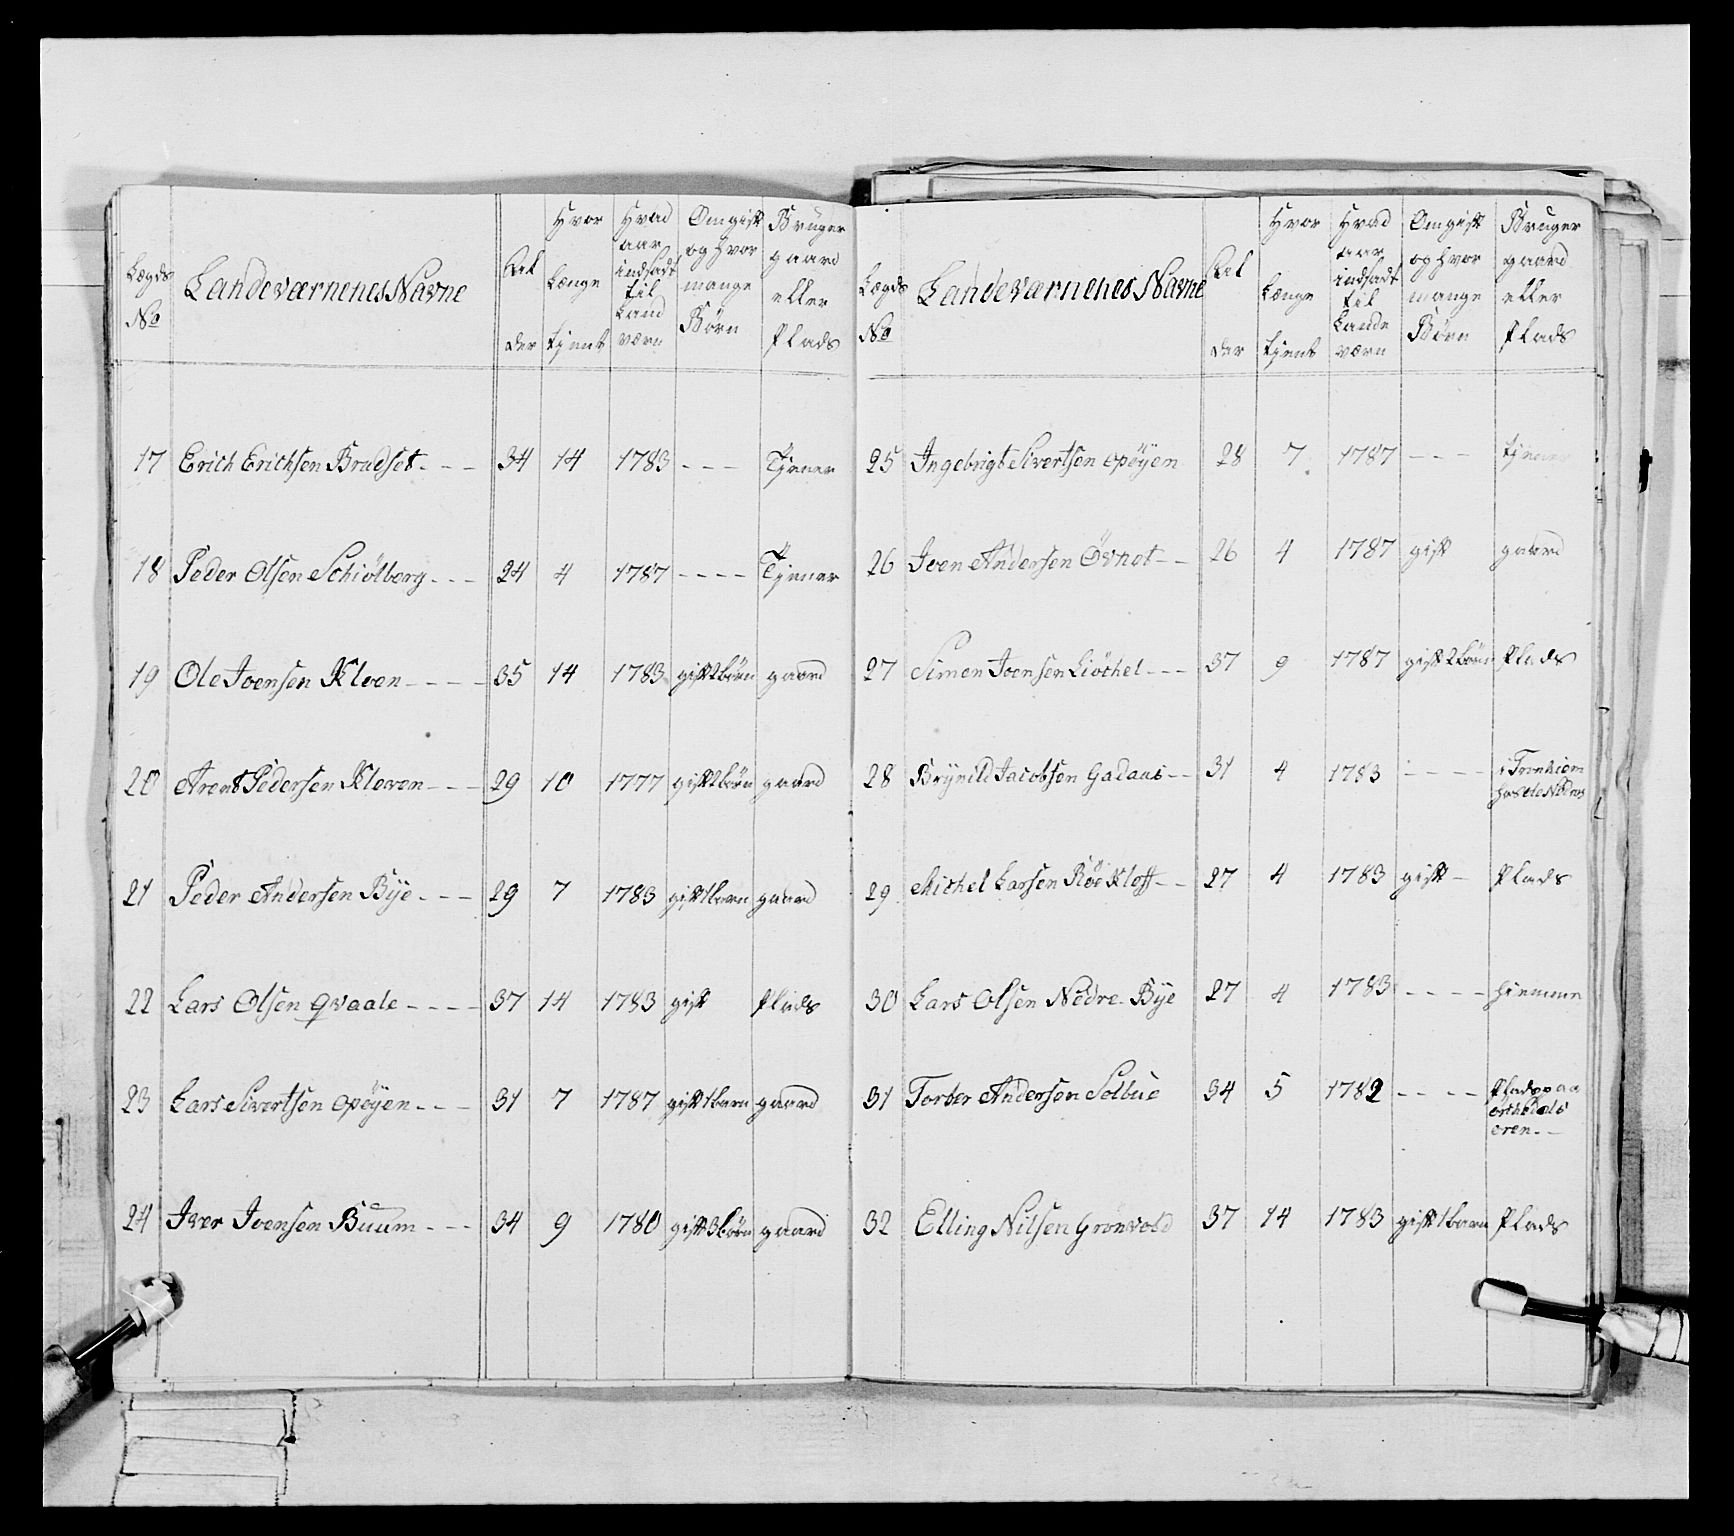 Lægds No | Landeværnenes Navne | Al der | Hvor Længe tjent | Hvad aar indsadt til Land værn | Om gift og hvor mange Børn | Bruger gaard eller Plads
17 Erich Erichsen Bradset - - - 34 14 1783 - - - Tjener
18 Peder Olsen Schiölberg - - - 24 4 1787 - - - - Tjener
19 Ole Joensen Kleven - - - - 35 14 1783 gift 1 börn gaard
20 Arent Pedersen Kleven - - - 29 10 1777 gift 1 börn gaard
21 Peder Andersen Bÿe - - - 29 7 1783 gift 1 barn gaard
22 Lars Olsen Qvaale - - - - 37 14 1783 gift Plads
23 Lars Sivertsen opöyen - - - 31 7 1787 gift 1 barn gaard
24 Iver Joensen Buum - - - 34 9 1780 gift 3 börn gaard
Lægds No | Landeværnenes Navne | Al der | Hvor Længe tjent | Hvad aar indsadt til Lande værn | Om gift og hvor mange Börn | Bruger gaard eller Plads
25 Ingebrigt Sivertsen opöyen 28 7 1787 - - - tjener
26 Joen Andersen Övnot - - 26 4 1787 gift gaard
27 Simen Joensen Liöchel - - - 37 9 1787 gift 2 börn Plads
28 Brynild Jacobsen Gadaas - - 31 4 1783 - - - - i Tronhiem
hos Ole
29 Michel Larsen Böe Kleff - - 27 4 1783 gift - Plads
30 Lars Olsen Nedre Bÿe 27 4 1783 - - - - hiemme
31 Torber Andersen Solbue 34 5 1782 - - - - Plads paa
örchedals
ören - -
32 Elling Nilsen Grönvold 37 14 1783 gift 1 barn Plads